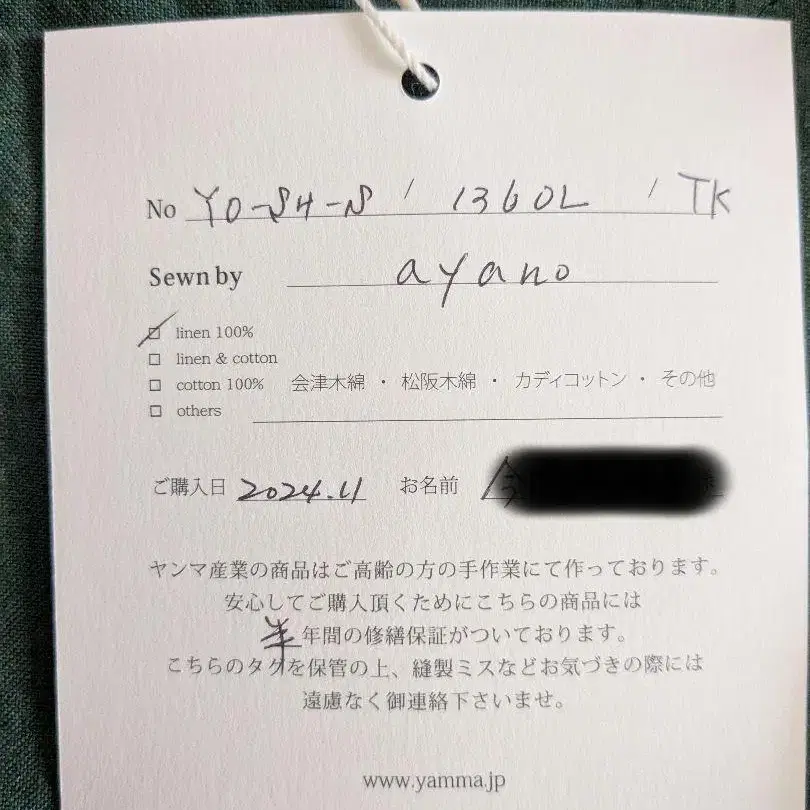 No YO-SH-S / 1360L / TK
Sewn by ayano
linen 100%
linen & cotton
cotton 100% 会津木綿 ・ 松阪木綿 ・ カディコットン ・ その他
others
ご購入日 2024.11 お名前
ヤンマ産業の商品はご高齢の方の手作業にて作っております。
安心してご購入頂くためにこちらの商品には
半年間の修繕保証がついております。
こちらのタグを保管の上、縫製ミスなどお気づきの際には
遠慮なく御連絡下さいませ。
www.yamma.jp